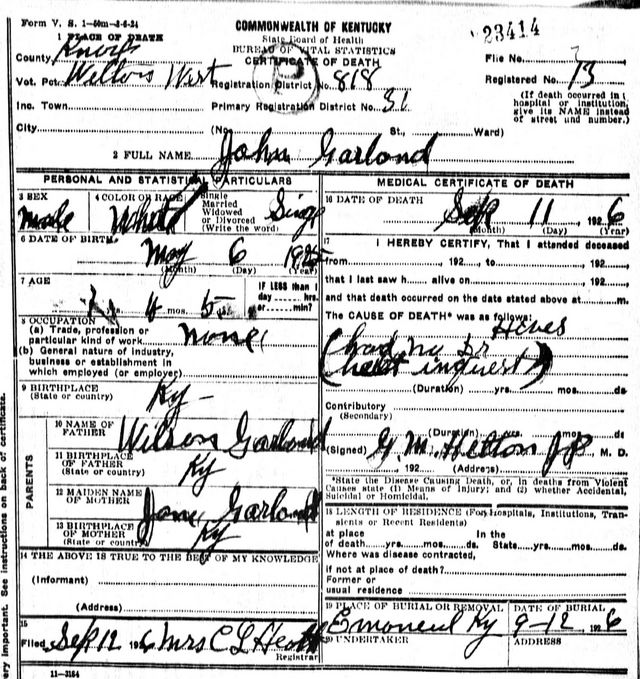 Form V. S. 1-50m-3-6-24
COMMONWEALTH OF KENTUCKY
State Board of Health
BUREAU OF VITAL STATISTICS
CERTIFICATE OF DEATH
23414
1 PLACE OF DEATH
County Knox
File No.
Vot. Pct. West Registration District No. 818
Registered No. 73
Inc. Town Primary Registration District No.
(If death occurred in a hospital or institution, give its NAME instead of street and number.)
City (No. St., Ward)
2 FULL NAME John Garland
PERSONAL AND STATISTICAL PARTICULARS
3 SEX male
4 COLOR OR RACE White
Single Married Widowed or Divorced (Write the word) Single
6 DATE OF BIRTH May 6 1925
(Month) (Day) (Year)
7 AGE
1 yrs. 4 mos. 5 ds.
IF LESS than 1 day hrs. or min?
8 OCCUPATION
(a) Trade, profession or particular kind of work none
(b) General nature of industry, business or establishment in which employed (or employer)
9 BIRTHPLACE
(State or country) Ky
PARENTS
10 NAME OF FATHER Wilson Garland
11 BIRTHPLACE OF FATHER
(State or country) Ky
12 MAIDEN NAME OF MOTHER Jane Garland
13 BIRTHPLACE OF MOTHER
(State or country) Ky
14 THE ABOVE IS TRUE TO THE BEST OF MY KNOWLEDGE
(Informant)
(Address)
15
Filed Sep 12 1926 Mrs C L
Registrar
11-3184
MEDICAL CERTIFICATE OF DEATH
16 DATE OF DEATH Sep 11 1926
(Month) (Day) (Year)
17
I HEREBY CERTIFY, That I attended deceased
from 192 to 192
that I last saw h alive on 192
and that death occurred on the date stated above at m.
The CAUSE OF DEATH* was as follows:
Hives
(had no Dr
(held inquest)
(Duration) yrs. mos. ds
Contributory
(Secondary)
(Duration) yrs. mos. ds
(Signed) G. M. JP M. D.
192 (Address)
*State the Disease Causing Death, or, in deaths from Violent Causes state (1) Means of Injury; and (2) whether Accidental, Suicidal or Homicidal.
18 LENGTH OF RESIDENCE (For Hospitals, Institutions, Transients or Recent Residents)
at place In the
of death yrs. mos. ds. State yrs. mos. ds.
Where was disease contracted,
if not at place of death?
Former or
usual residence
19 PLACE OF BURIAL OR REMOVAL
DATE OF BURIAL
Ky 9-12 1926
20 UNDERTAKER
ADDRESS
ery important. See instructions on back of certificate.